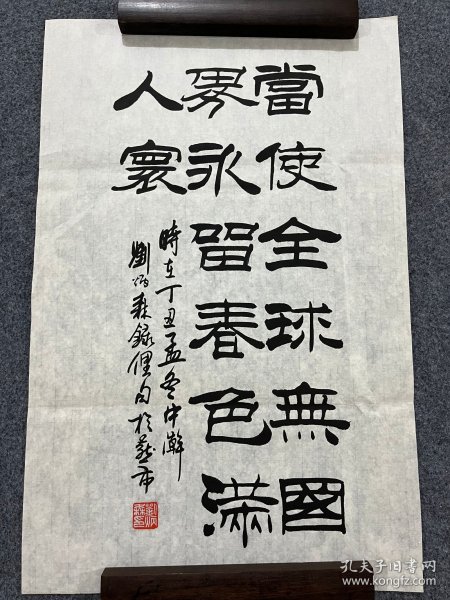 當使全球無國
界永留春色满
人寰
時在丁丑孟冬中澣
劉炳森錄俚句於燕市
孔夫子旧书网
www.kongfz.com